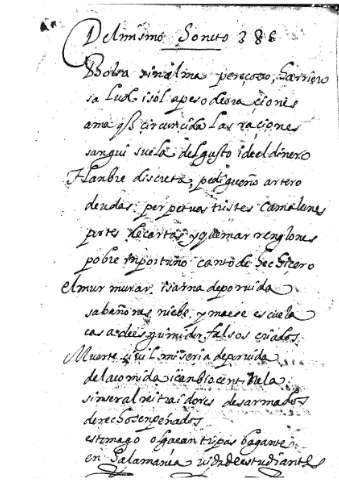 Del mismo Soneto 388
Bolsa sin alma pereçosso, harriero
salud i sol a peso de oraciones
ama q̃ circuncida las raciones
sangui suela del gusto i de el dinero
Hanbre discreta, pedigueño artero
deudas perpetuas tristes camaleones
portes de cartas y quemar renglones
pobre inportuno canto de hechicero
El murmurar sarna de por vida
sabañones niebe, y maese escuela
casa de es falsos criados
Muerte ciuil miseria de por uida
de la comida i canbio centinela
sin ser al reitra idores desarmados
derechos enpeñados
estomago olgaçan tripas bagante
en Salamanca uida de estudiantes